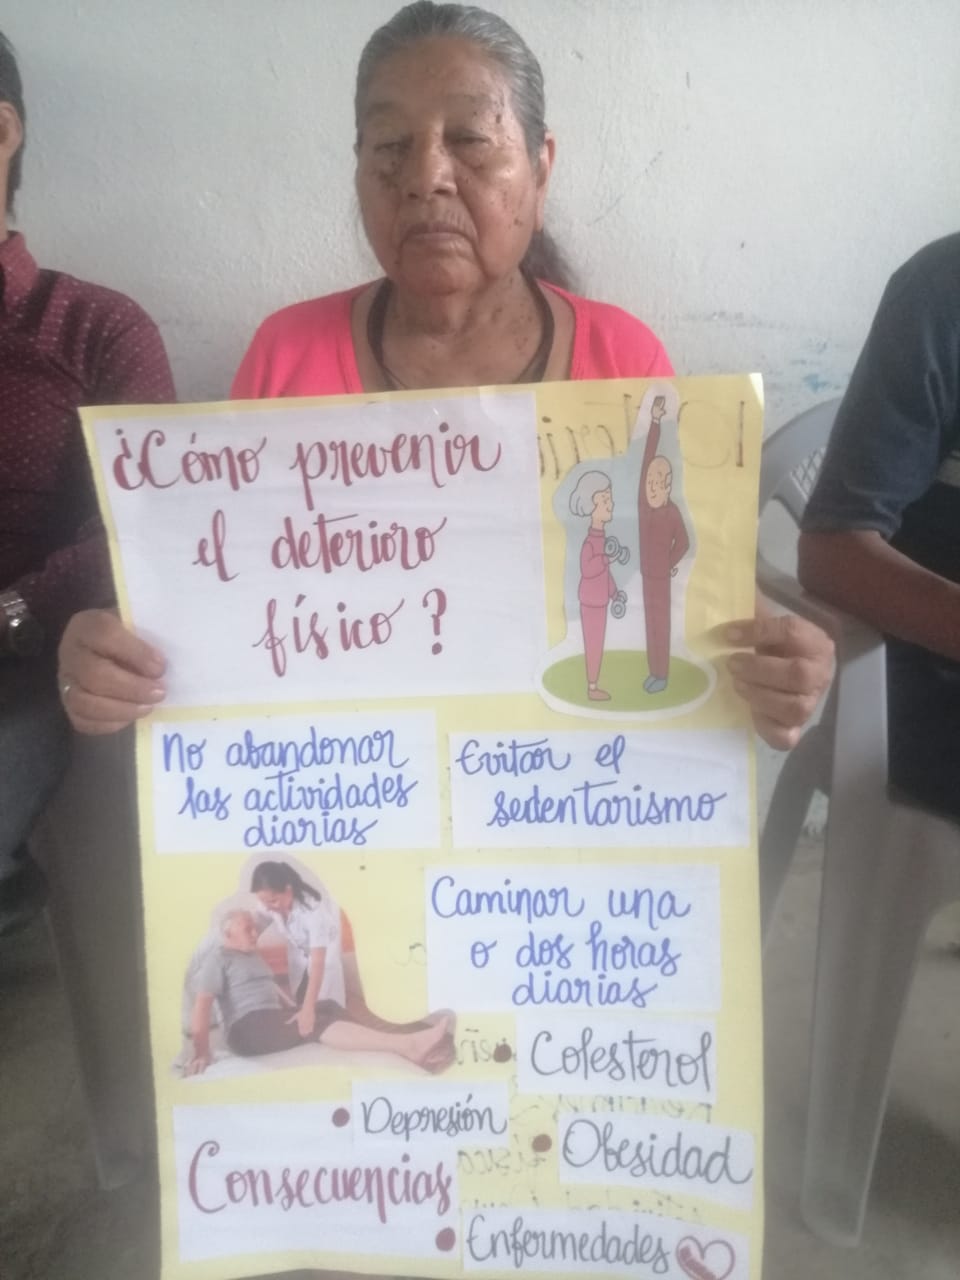 ¿Cómo prevenir
el deterioro
físico?
No abandonar
las actividades
diarias
Evitar el
sedentarismo
Caminar una
o dos horas
diarias
Consecuencias
• Colesterol
• Depresión
• Obesidad
• Enfermedades